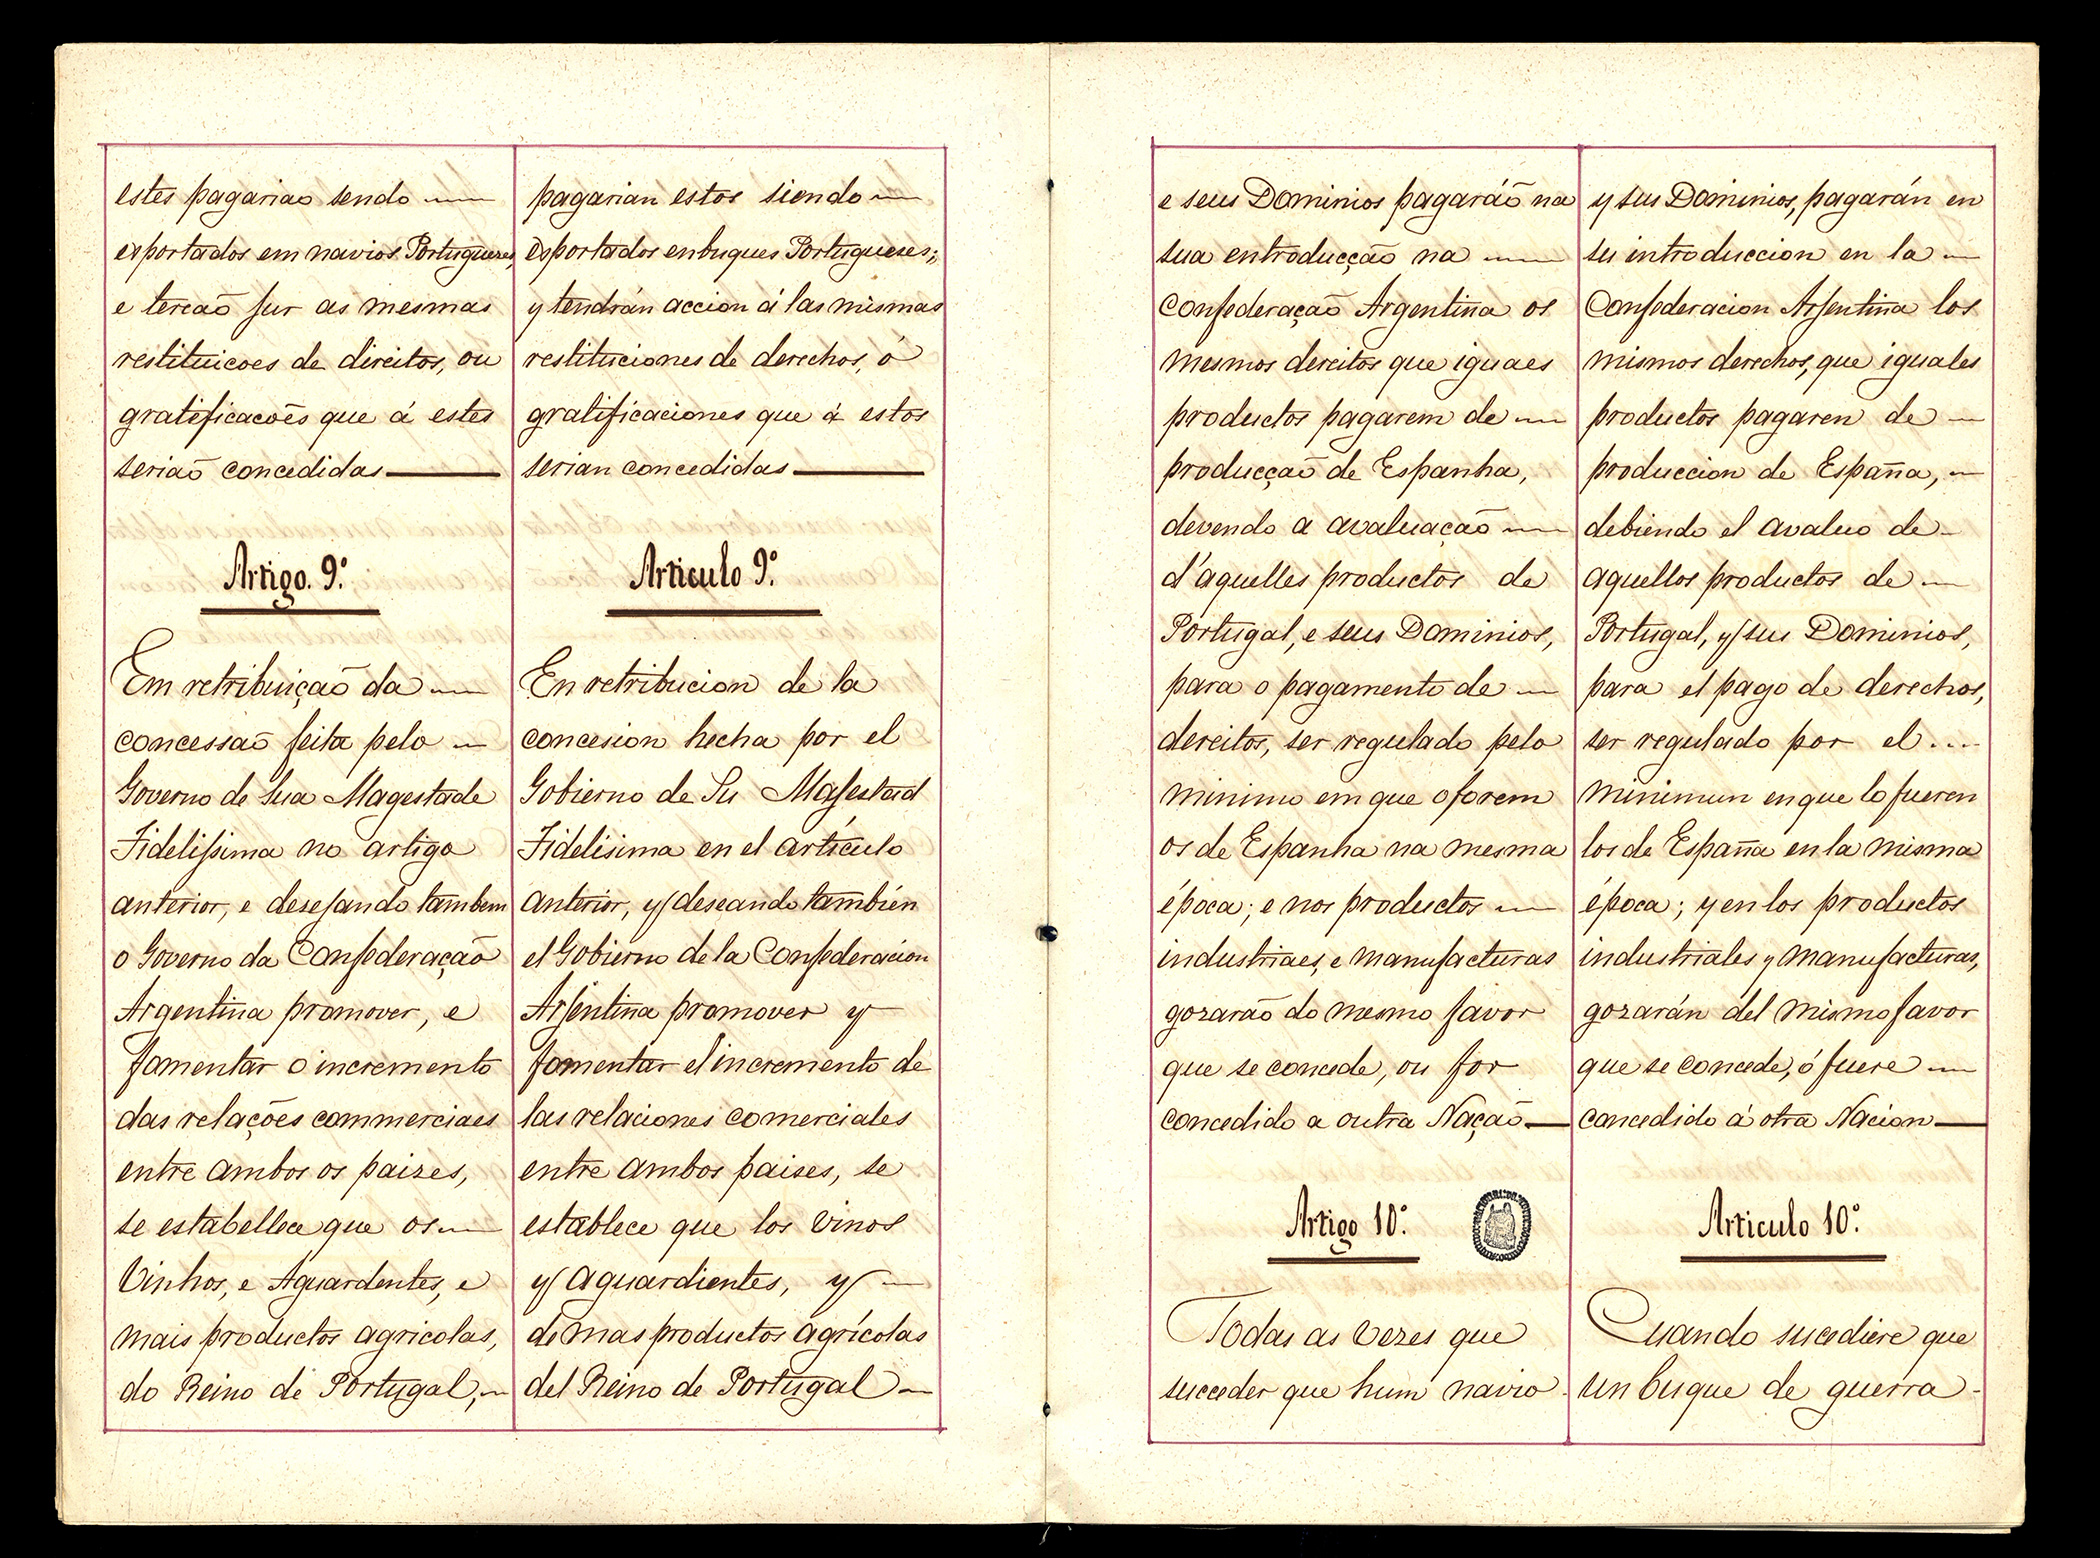 estes pagariao sendo
exportados em navios Portuguezes,
e tercaõ jur as mesmas
restituicoes de direitos, ou
gratificacoẽs que á estes
seriaõ concedidas
Artigo. 9.º
Em retribuiçaõ da
concessaõ feita pelo
Governo de Sua Magestade
Fidelissima no artigo
anterior, e desejando tambem
o Governo da Confederaçaõ
Argentina promover, e
fomentar o incremento
das relações commerciaes
entre ambos os paizes,
se estabellece que os
Vinhos, e Aguardentes, e
mais productos agricolas,
do Reino de Portugal,
pagarian estos siendo
esportados en buques Portugueses;
y tendrán accion á las mismas
restituciones de derechos, ó
gratificaciones que á estos
serian concedidas
Articulo 9.º
En retribucion de la
concesion hecha por el
Gobierno de Su Majestad
Fidelisima en el artículo
anterior, y deseando también
el Gobierno de la Confederacion
Arjentina promover y
fomentar el incremento de
las relaciones comerciales
entre ambos paises, se
establece que los vinos
y aguardientes, y
de mas productos agrícolas
del Reino de Portugal
e seus Dominios pagaráõ na
sua entroducçaõ na
Confederaçaõ Argentina os
mesmos dereitos que iguaes
productos pagarem de
producçaõ de Espanha,
devendo a avaluaçaõ
d'aquelles productos de
Portugal, e seus Dominios,
para o pagamento de
dereitos, ser regulado pelo
minimo em que o forem
os de Espanha na mesma
época; e nos productos
industriaes, e manufacturas
gozaraõ do mesmo favor
que se concede, ou for
concedido a outra Naçaõ
Artigo 10.º
Todas as vezes que
succeder que hum navio
y sus Dominios, pagarán en
su introduccion en la
Confederacion Arjentina los
mismos derechos, que iguales
productos pagaren de
produccion de España,
debiendo el avaluo de
aquellos productos de
Portugal, y sus Dominios,
para el pago de derechos,
ser regulado por el ....
minimun en que lo fueren
los de España en la misma
época; y en los productos
industriales y manufacturas,
gozarán del mismo favor
que se concede, ó fuere
concedido á otra Nacion
Articulo 10.º
Cuando sucediere que
un buque de guerra